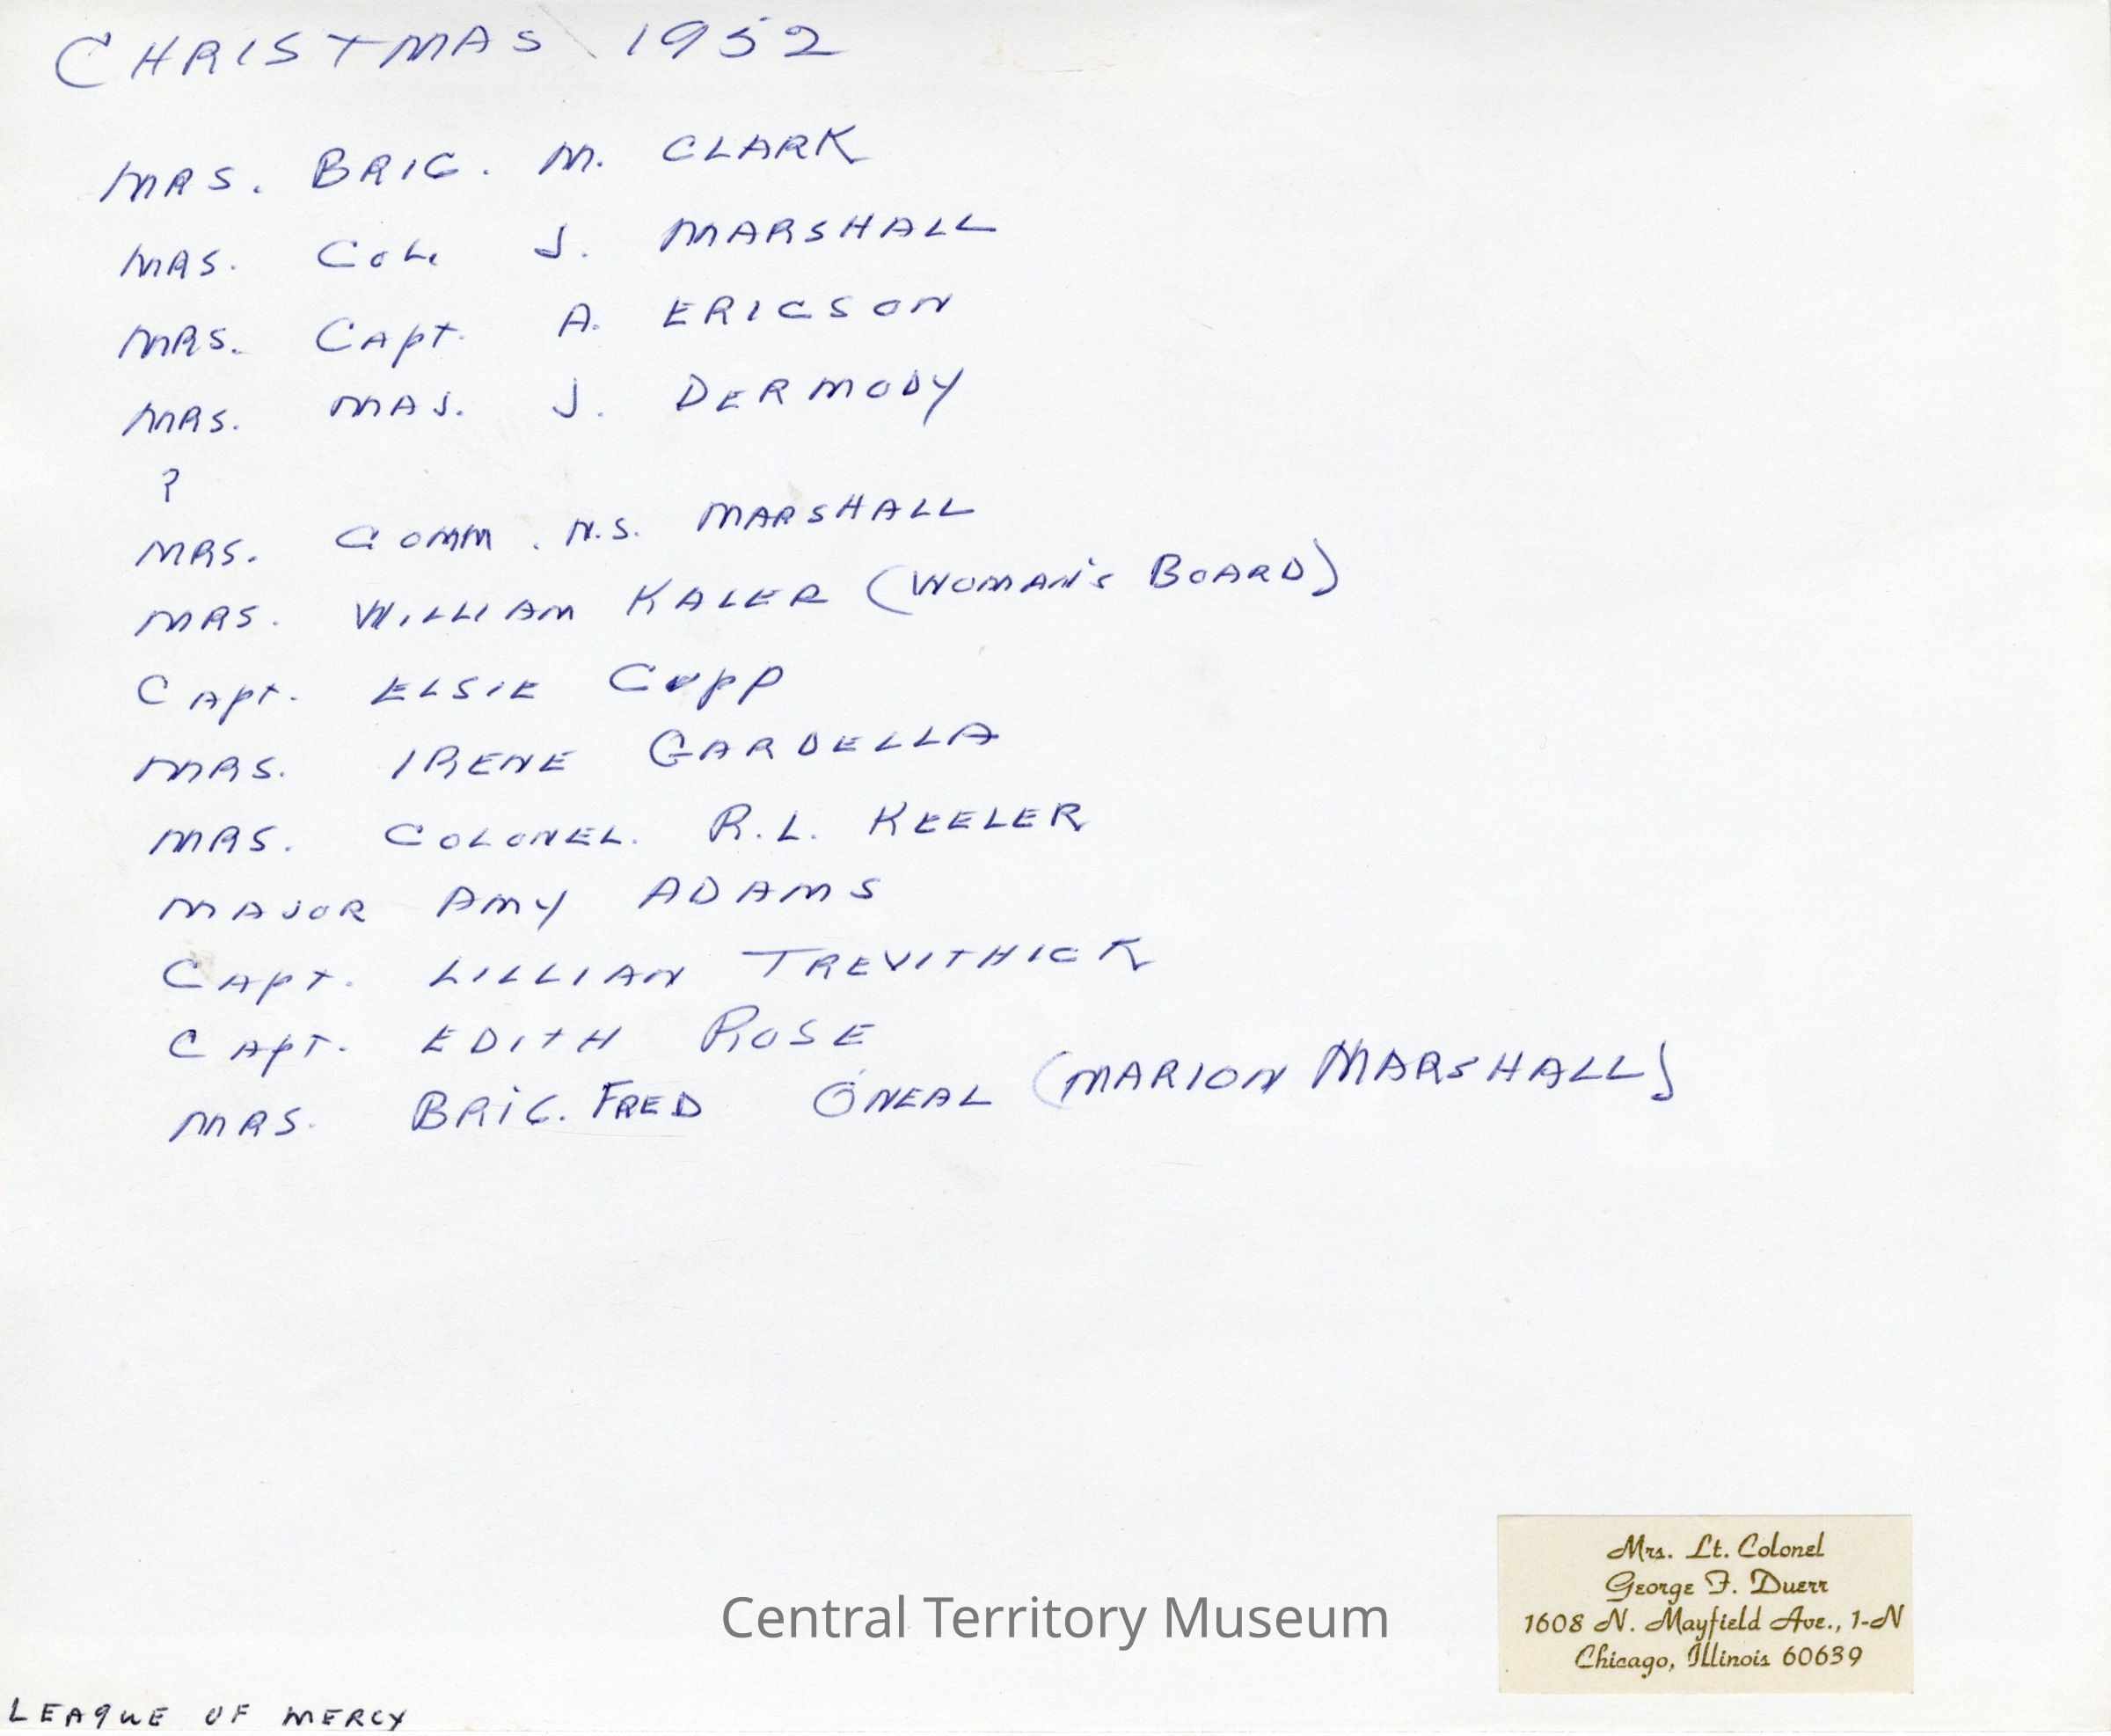 CHRISTMAS 1952
MRS. BRIG. M. CLARK
MRS. COL. J. MARSHALL
MRS. CApt. A. ERICSON
MRS. MAJ. J. DERMODY
?
MRS. COMM. N.S. MARSHALL
MRS. WILLIAM KALER (WOMAN'S BOARD)
CApt. ELSIE Cupp
MRS. IRENE GARDELLA
MRS. COLONEL. R.L. KEELER
MAJOR AMY ADAMS
CApt. LILLIAN TREVITHICK
CApt. EDITH ROSE
MRS. BRIG. FRED O'NEAL (MARION MARSHALL)
Mrs. Lt. Colonel
George F. Duerr
1608 N. Mayfield Ave., 1-N
Chicago, Illinois 60639
Central Territory Museum
LEAGUE OF MERCY